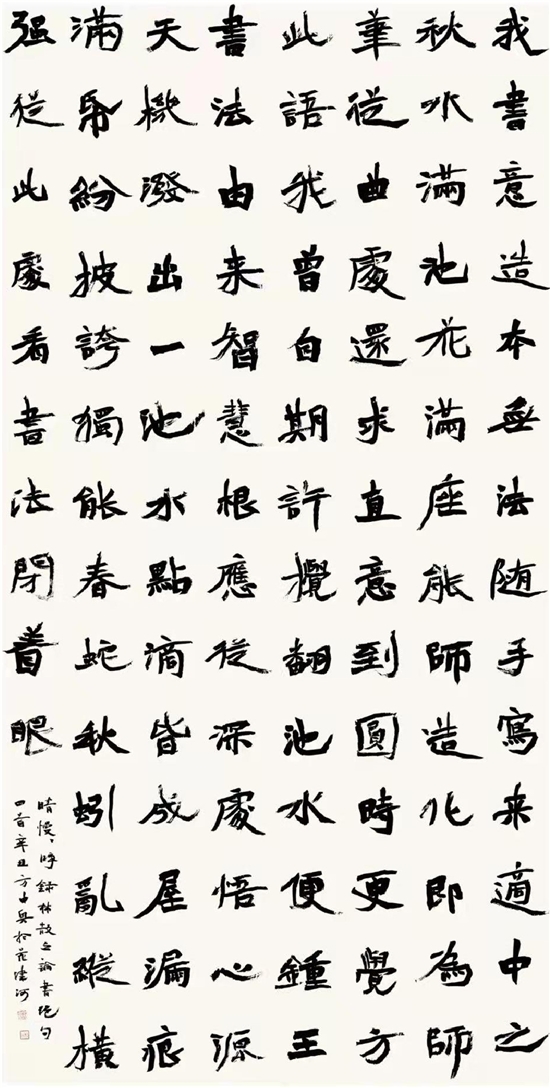 我書意造本無法随手寫来適中之
秋水滿池花滿座能師造化即為師
華從曲處還求直意到圓時更覺方
此語我曾自期許攪翻池水便鍾王
書法由来智慧根應從深處悟心源
天機潑出一池水點滴皆成屋漏痕
滿帋紛披誇獨能春蛇秋蚓亂縱橫
强從此處看書法閉着眼
録林散之論書絶句
四首辛丑方